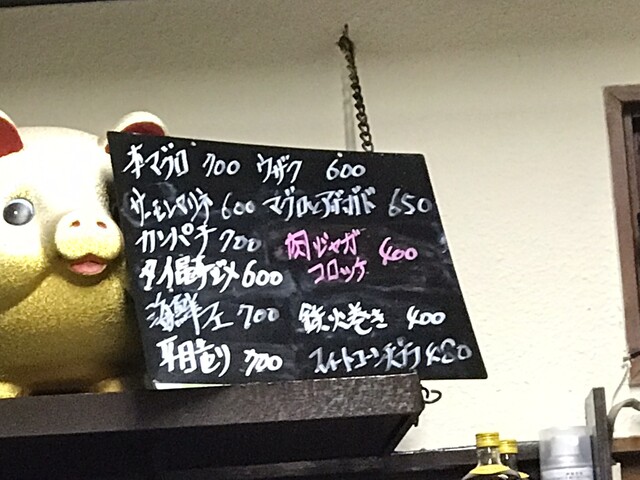 本マグロ 700 ウザク 600
サーモンマリネ 600 マグロとアボガド 650
カンパチ 700 肉ジャガ
コロッケ 400
タイ昆布ジメ 600
海鮮 700 鉄火巻き 400
平目造り 700 スイートコーン天プラ 480